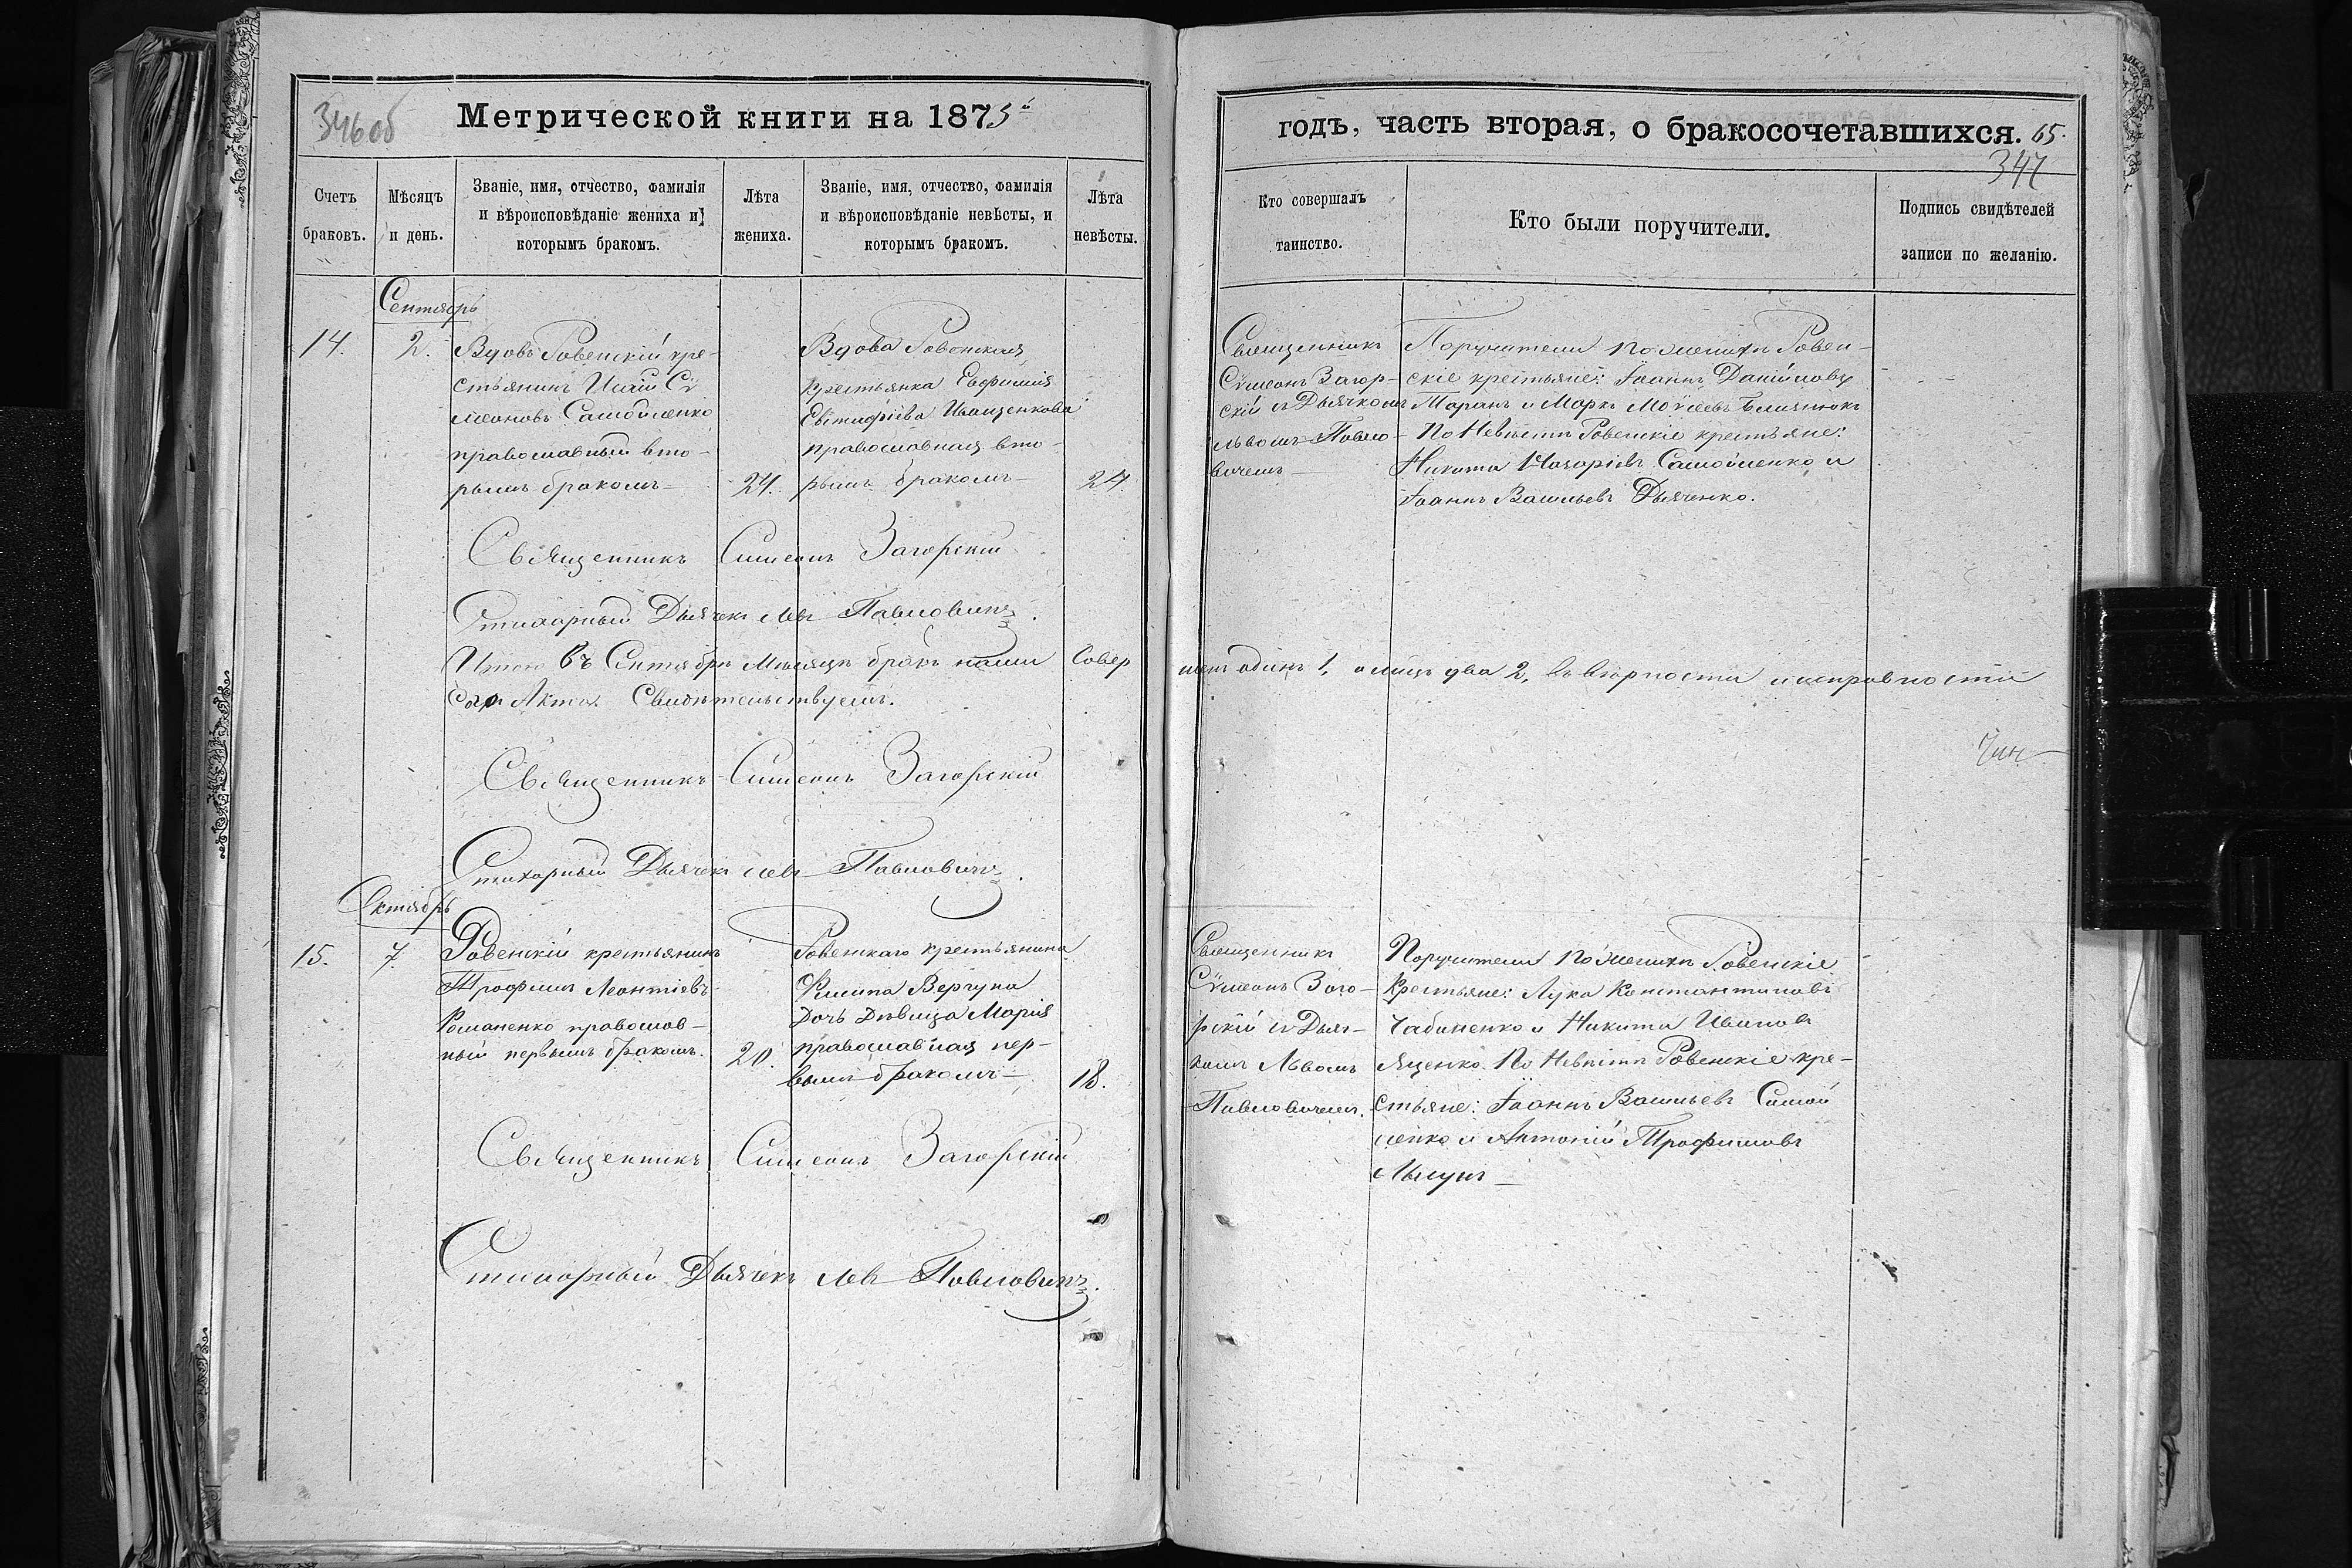 346об
Метрической книги на 1875й
годъ, часть вторая, о бракосочетавшихся. 65.
347
Счетъ браковъ.
Мѣсяцъ и день.
Званіе, имя, отчество, фамилія
и вѣроисповѣданіе жениха и
которымъ бракомъ.
Лѣта жениха.
Званіе, имя, отчество, фамилія
и вѣроисповѣданіе невѣсты, и
которымъ бракомъ.
Лѣта невѣсты.
Кто совершалъ таинство.
Кто были поручители.
Подпись свидѣтелей
записи по желанію.
Сентябрь
14.
2.
Вдовъ Ровенскій кре-
стьянинъ Исаій Сѵ
меоновъ Самойленко
православный вто-
рымъ бракомъ
24.
Вдова Ровенская
крестьянка Евфимія
Иващенкова
православная вто-
рымъ бракомъ
24.
Священникъ
Сѵмеонъ Загор-
скій съ Дьячкомъ
Львомъ Павло-
вичемъ
Поручители по женихѣ Ровен-
скіе крестьяне: Іоаннъ Даніиловъ
Таранъ и Маркъ Моѵсеевъ
По Невѣстѣ Ровенскіе крестьяне:
Никита Назаріевъ Самойленко и
Іоаннъ Васильевъ Дьяченко.
Священникъ Симеонъ Загорскій
Стихарный Дьячекъ Левъ Павловичъ.
Итого въ Сентябрѣ Мѣсяцѣ бракъ Совер
шенъ одинъ 1, а лицъ два 2, въ вѣрности и исправности
Свидѣтельствуемъ.
Священникъ Симеонъ Загорскій
Стихарный Дьячекъ Левъ Павловичъ.
Октябрь
15.
7.
Ровенскій крестьянинъ
Трофимъ Леонтіевъ
Романенко православ-
ный первымъ бракомъ.
20.
Ровенскаго крестьянина
Филипа Вергуна
дочь Дѣвица Марія
православная пер-
вымъ бракомъ
18.
Священникъ
Сѵмеонъ Заго-
рскій съ Дьяч-
комъ Львомъ
Павловичемъ.
Поручители по женихѣ Ровенскіе
Крестьяне: Лука Константиновъ
Чабаненко и Никита Ивановъ
Яценко. По Невѣстѣ Ровенскіе кре-
стьяне: Іоаннъ Васильевъ Самой
ленко и Антоній Трофимовъ
Священникъ Симеонъ Загорскій
Стихарный Дьячекъ Левъ Павловичъ.